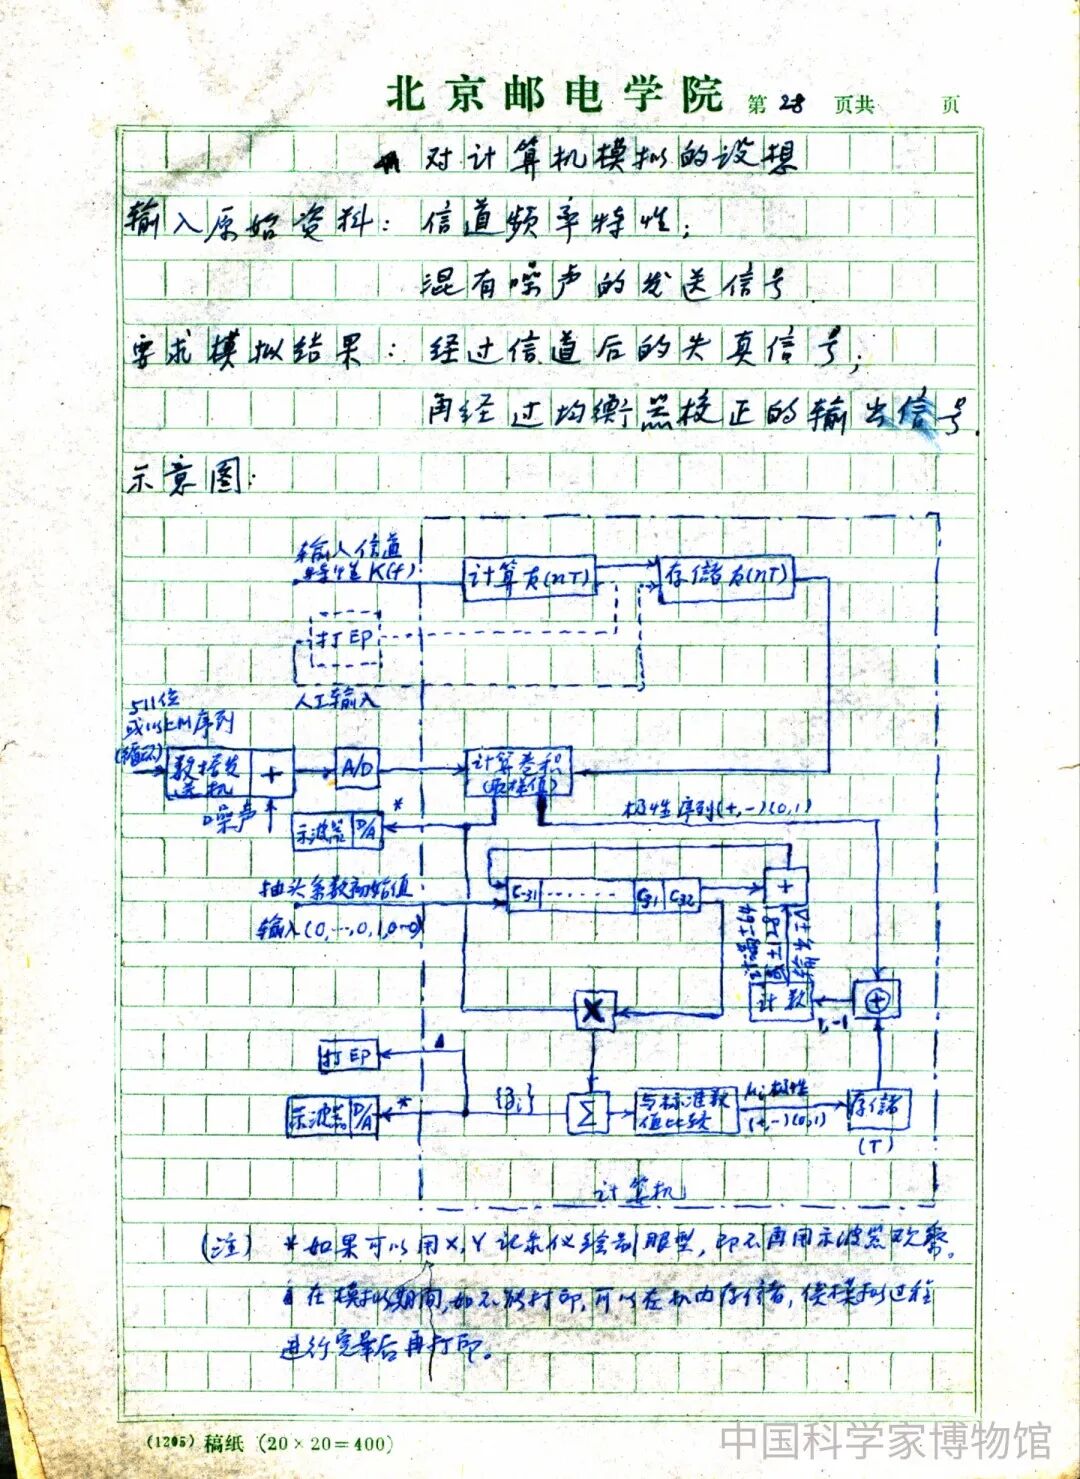 北京邮电学院 第28页共 页
对计算机模拟的设想
输入原始资料：信道频率特性；
混有噪声的发送信号
要求模拟结果：经过信道后的失真信号；
再经过均衡器校正的输出信号.
示意图：
输入信道
特性K(f)
计算 (nT)
存储 (nT)
打印
人工输入
511位
序列
(循环)
数据发
送机
+
A/D
计算卷积
(取样值)
噪声
示波器 D/A
*
极性序列(+,-)(0,1)
抽头系数初始值
输入(0,…,0,1,0…0)
C-31 ……… C31 C32
+
计满±64
或±128
输出±Δ
计数
⊕
1,-1
X
打印
Δ
示波器 D/A
*
Σ
与标准数
值比较
极性
(+,-)(0,1)
存储
(T)
计算机
(注) *如果可以用X,Y记录仪绘制眼型，即不再用示波器观察。
在模拟期间,如不能打印,可以在机内存储,俟模拟过程
进行完毕后再打印。
(1205) 稿纸 (20×20=400)
中国科学家博物馆